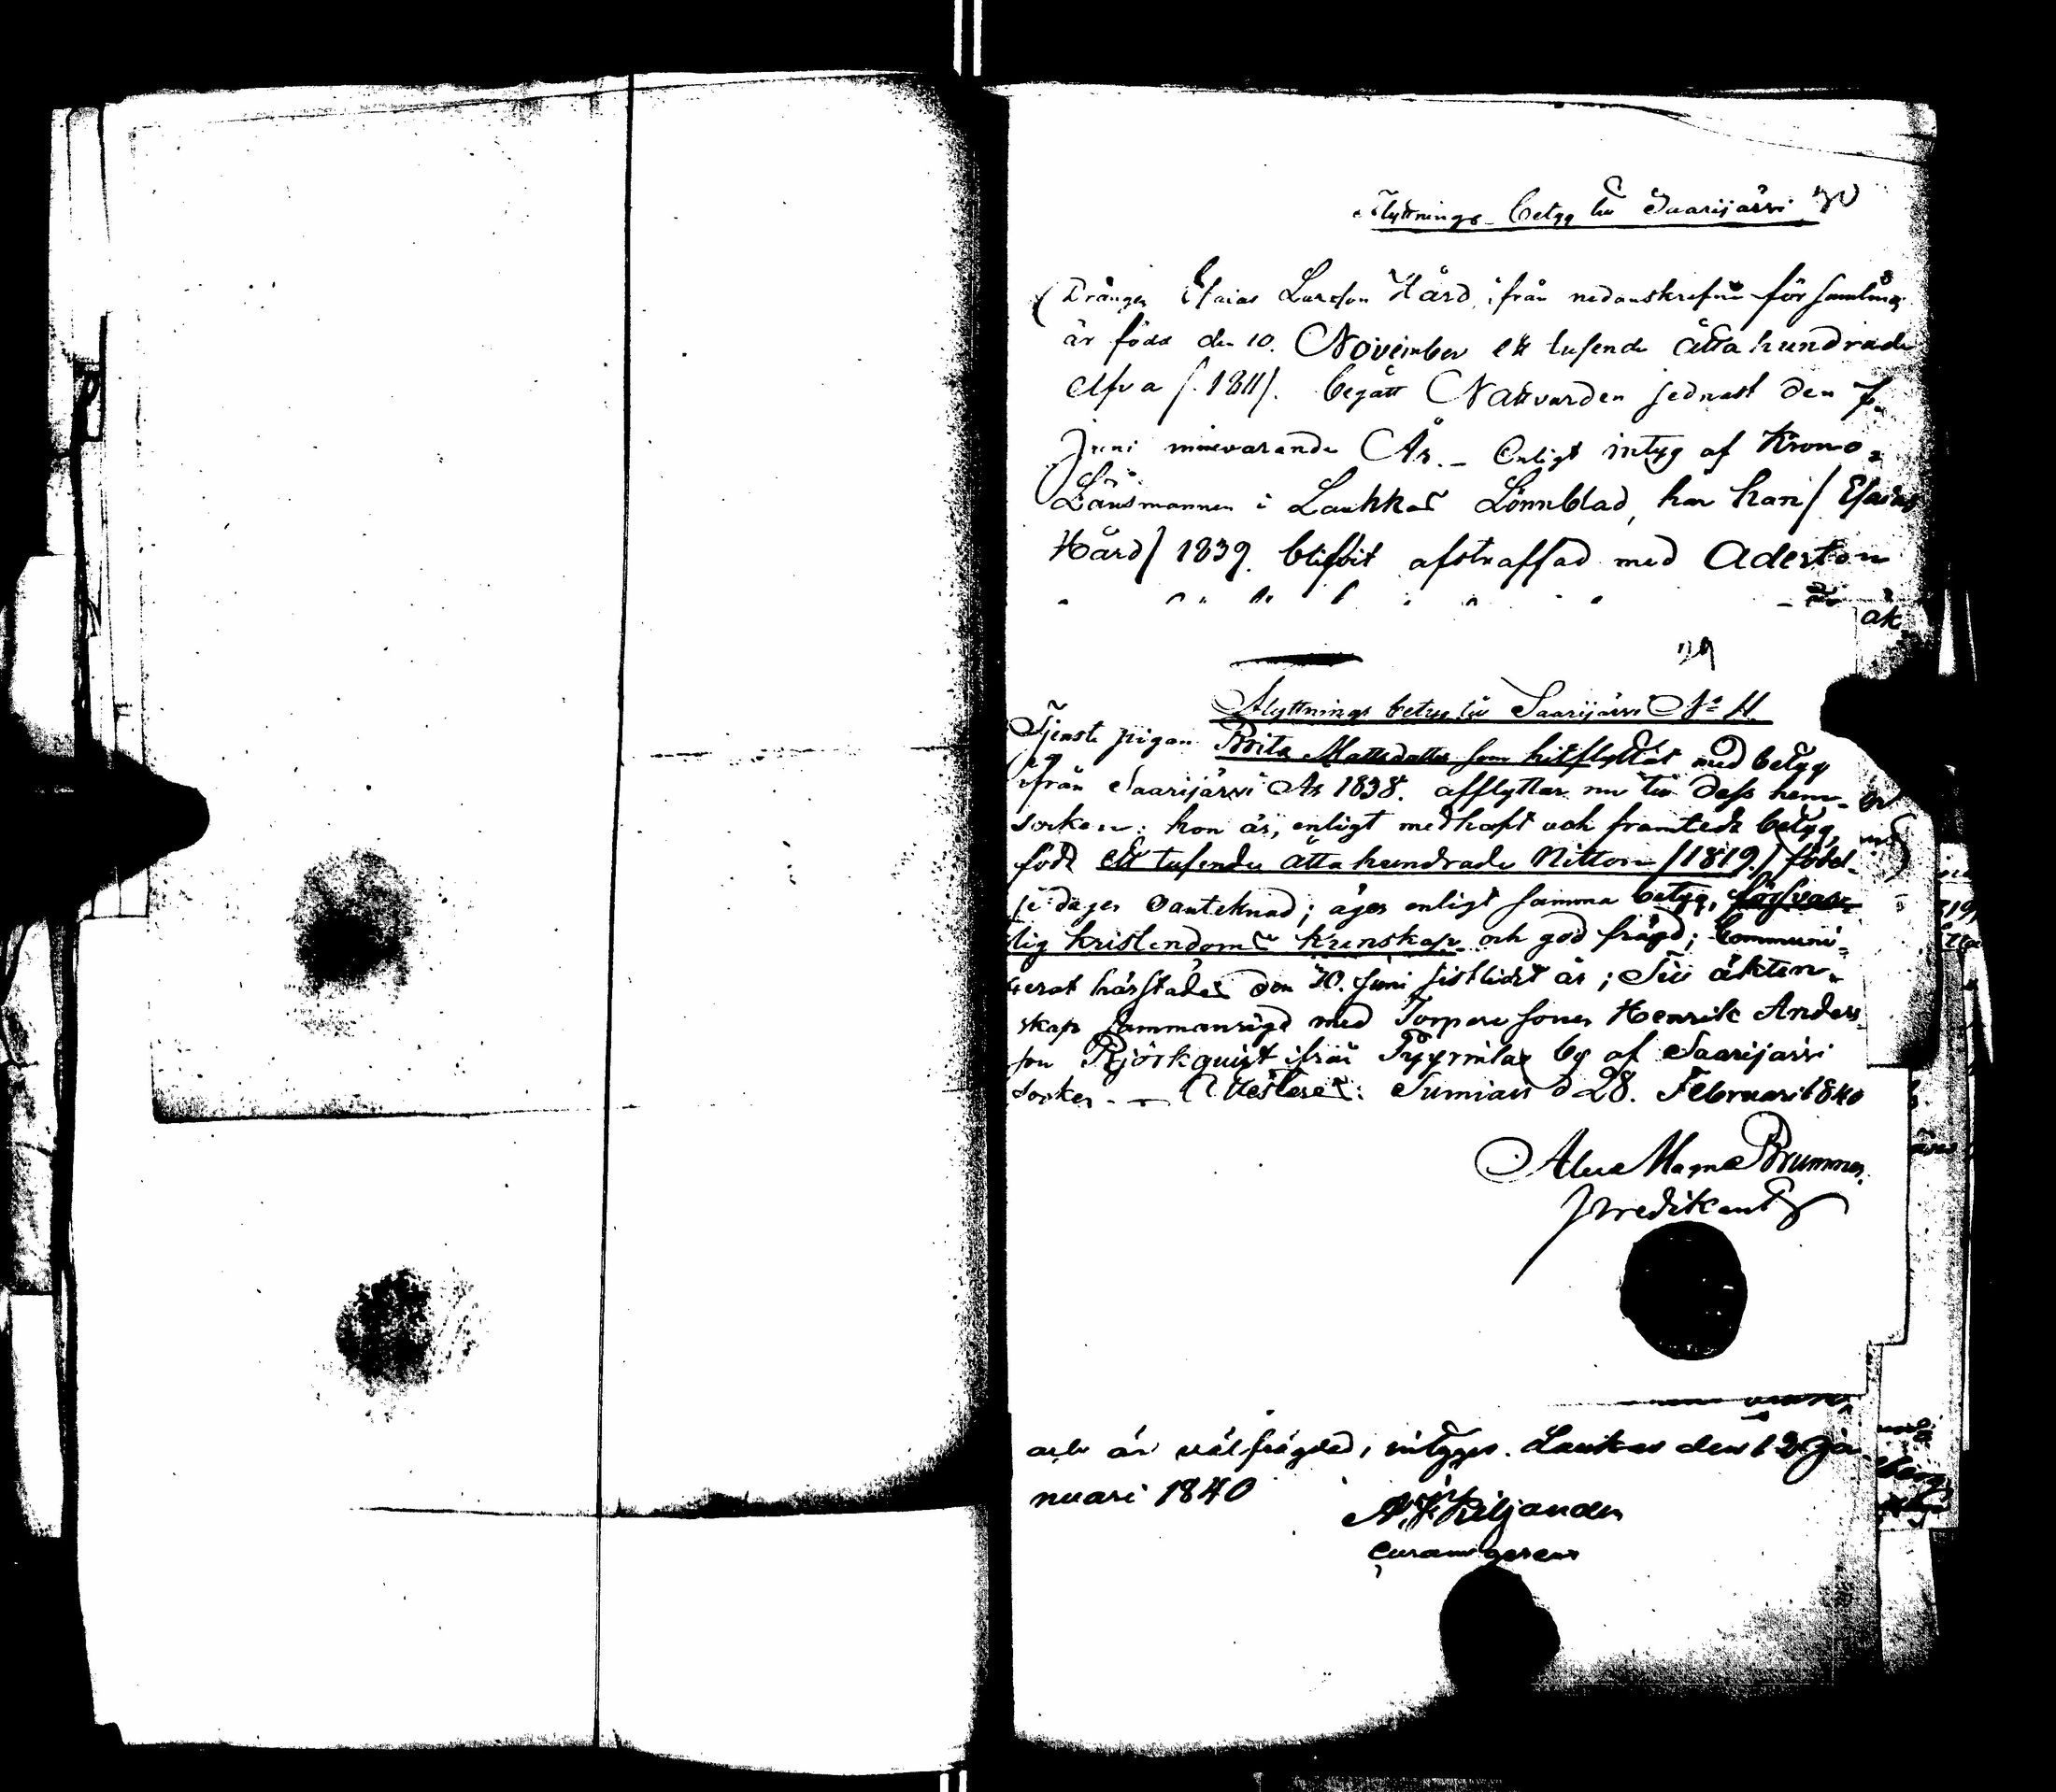 Flyttnings-betyg till Saarijärvi 30
Drängen Esaias Larsson Hård, ifrån nedanskrefne församling
är född den 10. November ett tusende åtta hundrade
elfva /.1811/. begått Nattvarden sednast den 7.
Juni innevarande År._ Enligt intyg af Krono=
Länsmannen i Laukkas Lönnblad, har han / Esaias
Hård / 1839. blifvit afstraffad med Aderton
äk
29
Flyttnings betyg till Saarijärvi No 11.
Tjenste pigan Brita Mattsdotter som hitflyttat med betyg
ifrån Saarijärvi År 1838. afflyttar nu till dess hem-
socken: hon är, enligt medhaft och framtedt betyg,
född ett tusende åtta hundrade Nitton /1819/ födel-
se dagen oanteknad; äger enligt samma betyg, försvar-
lig kristendoms kunskap och god frägd; Communi=
cerat härstädes den 10. Juni sistlidet år; Till äkten=
skap sammanvigd med Torpare sonen Henrik Anders
son Björkquist ifrån Pyyrinlax by af Saarijärvi
Socken. _ Attesterer: Sumiais d 28. Februari 1840
Magns Brummer.
Predikant
och är välfrägdad, intygges. Laukas den 12 Ja
nuari 1840
Kiljander
Curam gerens